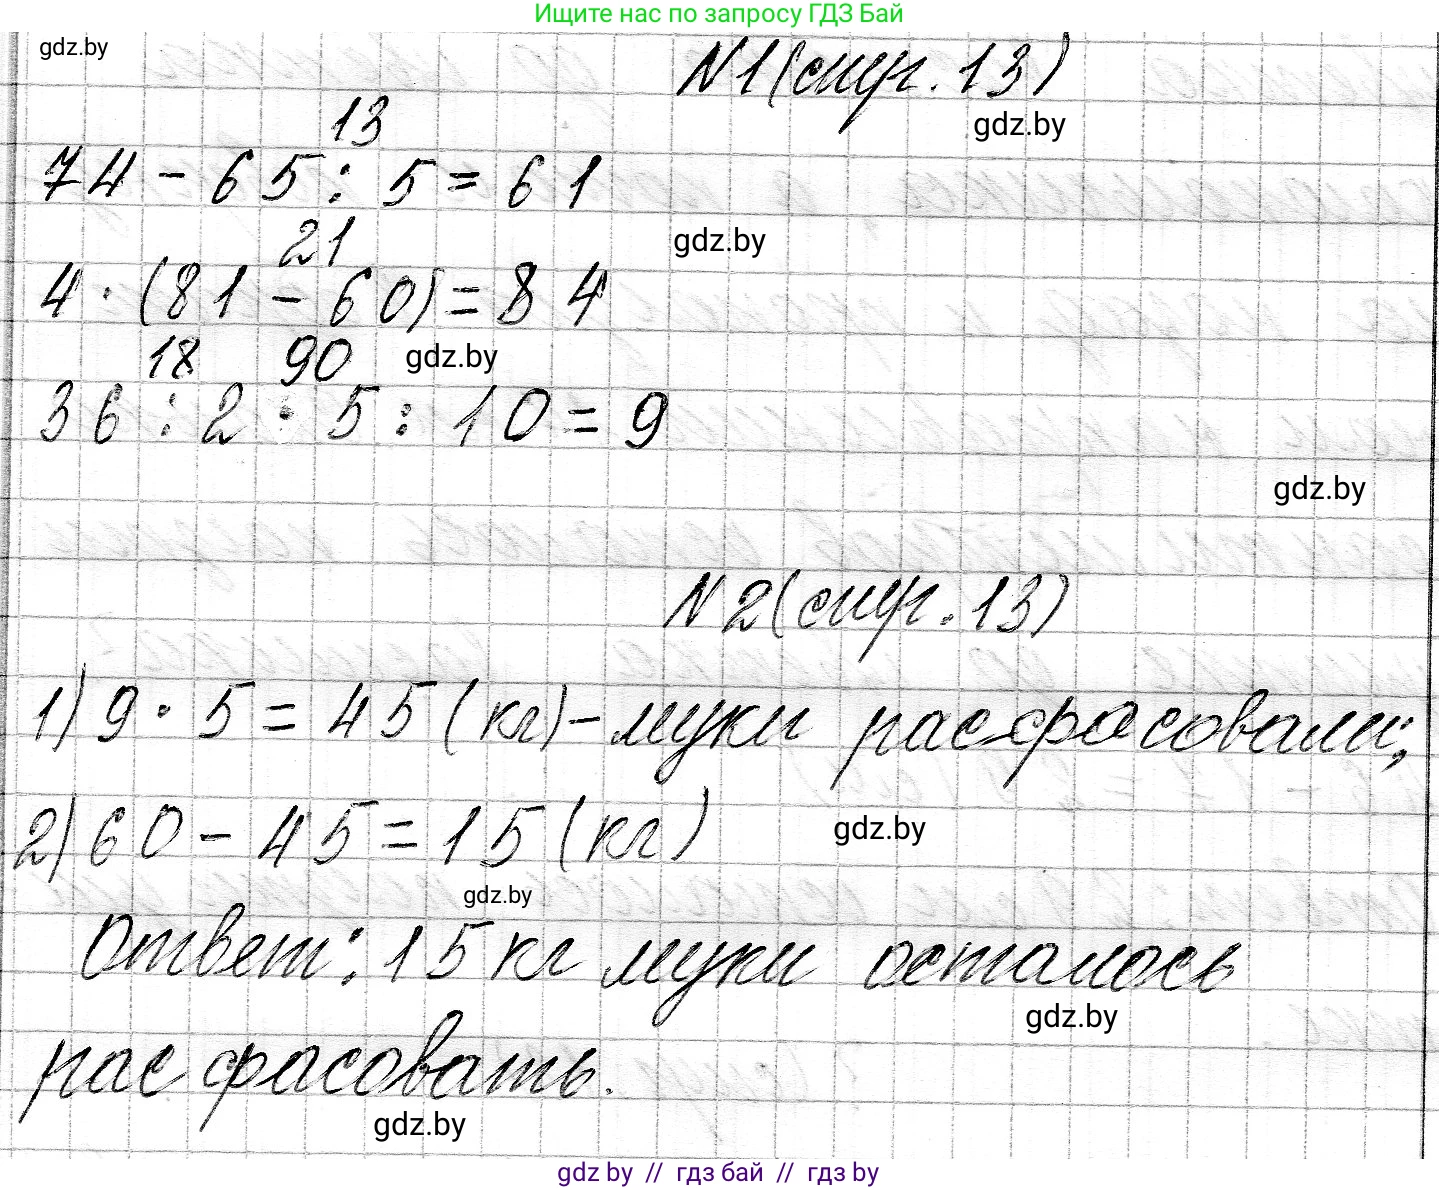 Ищите нас по запросу ГДЗ Бай
gdz.by
N1(стр. 13)
gdz.by
13
74 - 65 : 5 = 61
21
gdz.by
4 · (81 - 60) = 84
18 90
gdz.by
36 : 2 · 5 : 10 = 9
gdz.by
N2(стр. 13)
1) 9 · 5 = 45 (кг) - муки расфасовали;
2) 60 - 45 = 15 (кг)
gdz.by
gdz.by
Ответ: 15 кг муки осталось
gdz.by
расфасовать.
gdz.by
gdz by // гдз бай // гдз by